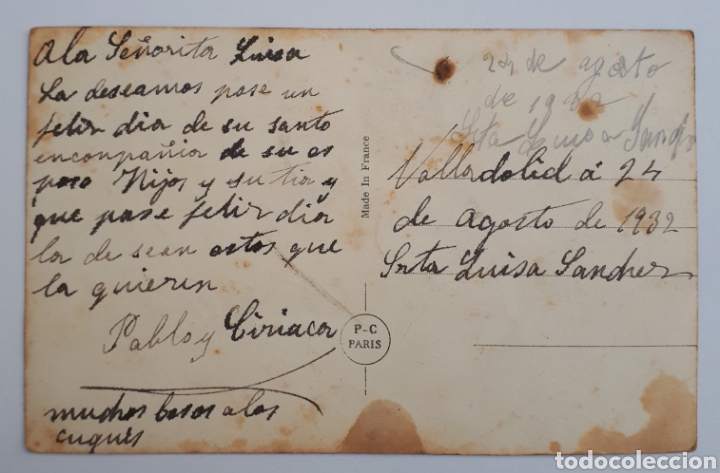 a la Señorita Luisa
La deseamos pase un
feliz dia de su santo
en conpañia de su es
poso Hijos y su tia y
que pase feliz dia
la de sean estos que
la quieren
Pablo y Ciriaca
muchos besos a los
cuques
Made In France
P-C
PARIS
24 de agosto
de 1932
Srta Luisa Sanchez
Valladolid á 24
de agosto de 1932
Srta Luisa Sanchez
todocoleccion